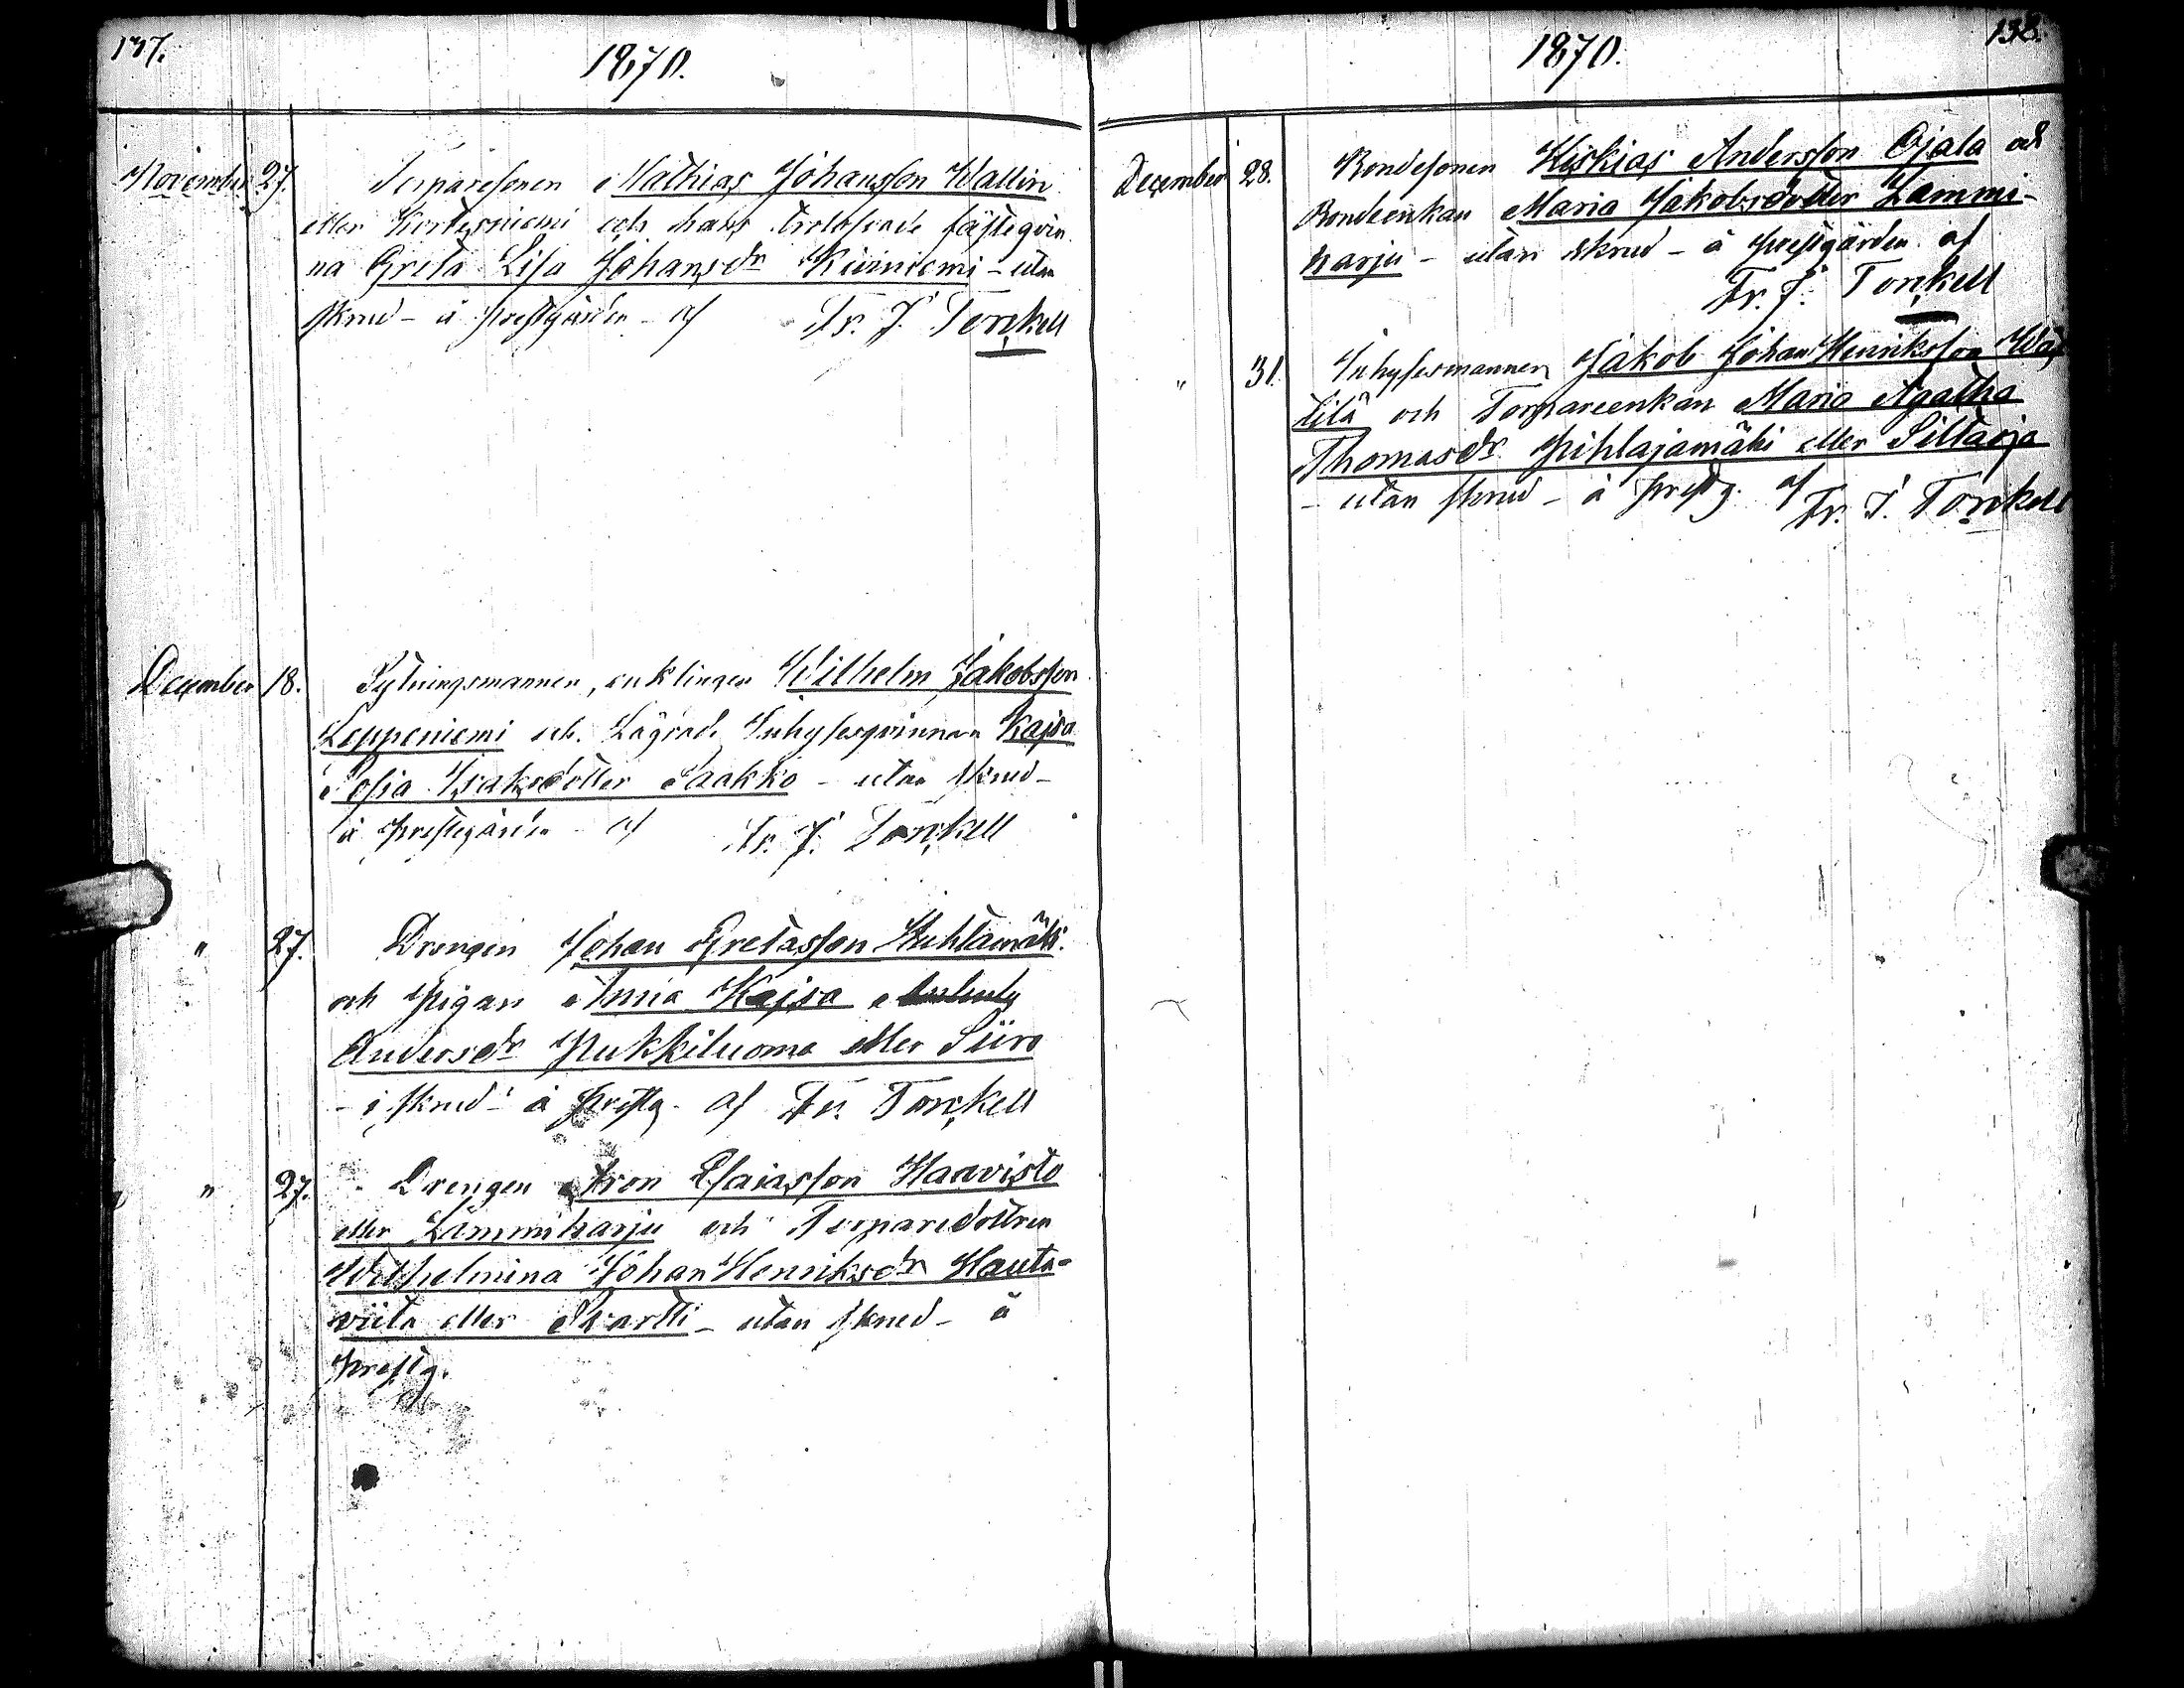 137.
1870.
November 27. Torparesonen Mathias Johansson Wallin
eller Kortesniemi och hans trolofvade fästeqvin
na Greta Lisa Johansdr Kiviniemi - utan
skrud - å prestgården - af Fr. J. Torckell
December 18. Sytningsmannen, enklingen Wilhelm Jakobsson
Leppeniemi och Lägrade Inhysesqvinnan Kajsa
Sofia Isaksdotter Saakko - utan skrud -
å prestegården - af Fr. J. Torckell
" 27. Drengen Johan Gretasson Huhtamäki
och Pigan Anna Kajsa
Andersdr Pukkiluoma eller Siiro
- i skrud - å prestg. af Fr. Torckell
" 27. Drengen Aron Esaiasson Haavisto
eller Lammiharju och Torparedottren
Wilhelmina Johan Henriksdr Hauta-
viita eller Svartti - utan skrud - å
prestg.
138.
1870.
December 28. Bondesonen Hiskias Andersson Ojala och
Bondeenkan Maria Jakobsdotter Lammi-
harju - utan skrud - å prestgården af
Fr. J. Torckell
" 31. Inhysesmannen Jakob Johan Henriksson
tilä och Torpareenkan Maria Agatha
Thomasdr Pihlajamäki eller Siltarja
- utan skrud - å prestg. af Fr. J. Torckell